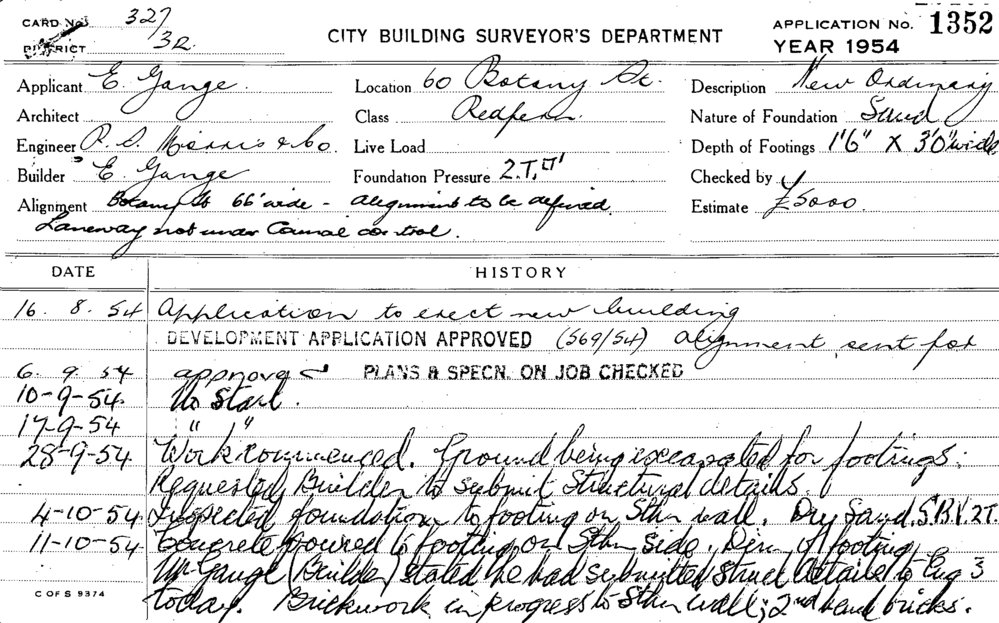 CARD No. 327
DISTRICT 32
CITY BUILDING SURVEYOR'S DEPARTMENT
APPLICATION No. 1352
YEAR 1954
Applicant E. Gange.
Location 60 Botany St.
Description New Ordinary
Architect
Class Redfern
Nature of Foundation Sand
Engineer R. S. Morris & Co.
Live Load
Depth of Footings 1'6" X 3'0" wide
Builder E. Gange
Foundation Pressure 2.T.
Checked by
Alignment Botany St 66' wide - alignment to be defined.
Estimate £5000.
Laneway not under Council control.
DATE HISTORY
16. 8. 54 Application to erect new building
DEVELOPMENT APPLICATION APPROVED (569/54) Alignment sent for
6. 9. 54 approved PLANS & SPECN. ON JOB CHECKED
10-9-54. No Start.
17-9-54 " "
28-9-54 Work commenced. Ground being excavated for footings:
Requested Builder to submit Structural details.
4-10-54 Inspected foundation to footing on Sthn wall. Dry Sand, S.B.V. 2T.
11-10-54 Concrete poured to footing on Sthn Side. Dim. of footing
Mr Gange (Builder) stated he had submitted Struct details to Eng 3
today. Brickwork in progress to Sthn wall; 2nd hand bricks.
C OF S 9374